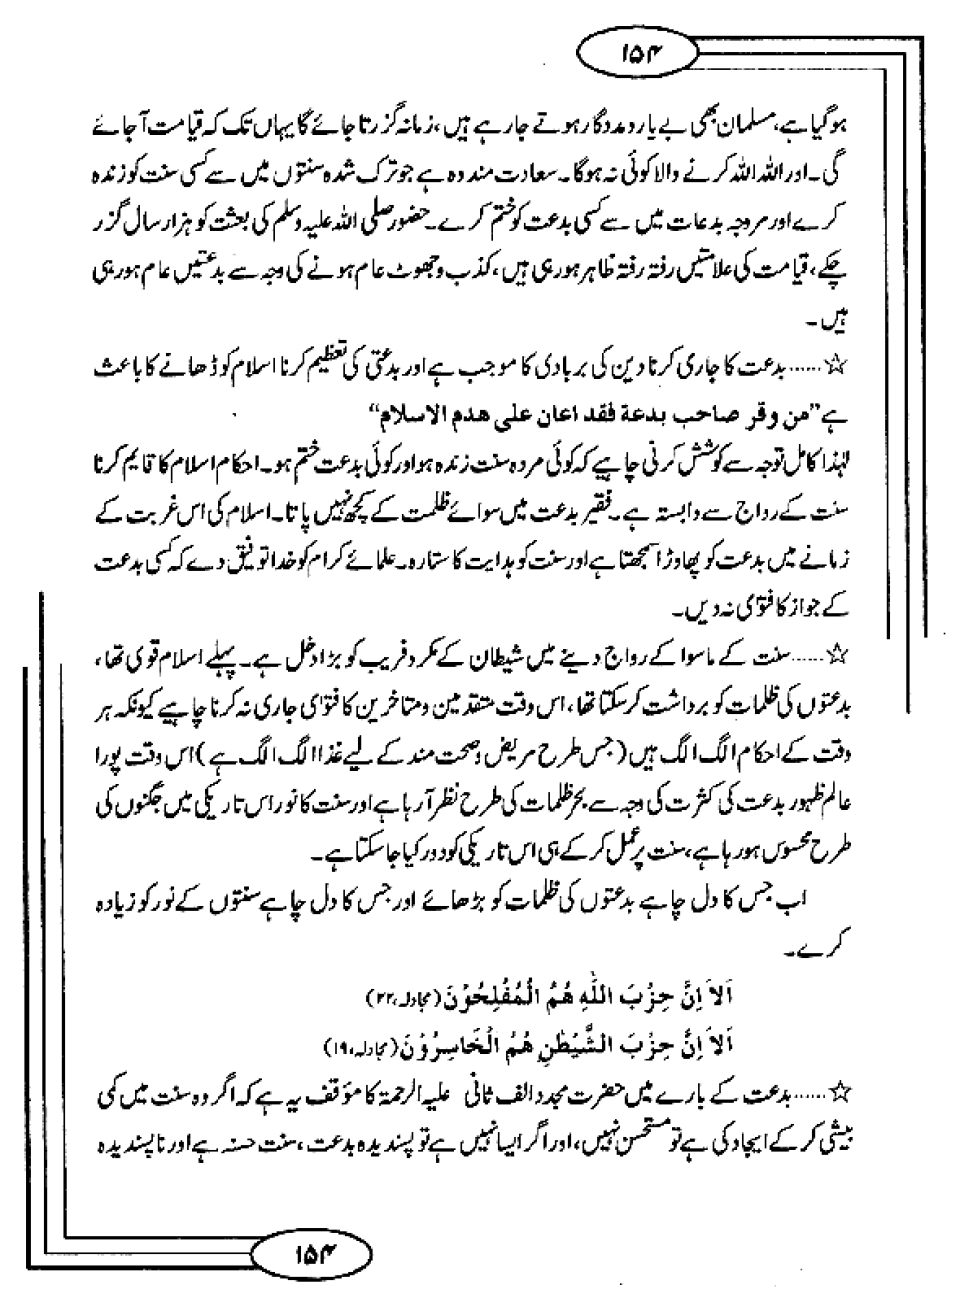 ۱۵۴
ہوگیا ہے، مسلمان بھی بے یار و مددگار ہوتے جارہے ہیں، زمانہ گزرتا جائے گا یہاں تک کہ قیامت آجائے
گی۔ اور اللہ اللہ کرنے والا کوئی نہ ہوگا۔ سعادت مند وہ ہے جو ترک شدہ سنتوں میں سے کسی سنت کو زندہ
کرے اور مروجہ بدعات میں سے کسی بدعت کو ختم کرے۔ حضور صلی اللہ علیہ وسلم کی بعثت کو ہزار سال گزر
چکے، قیامت کی علامتیں رفتہ رفتہ ظاہر ہورہی ہیں، کذب و جھوٹ عام ہونے کی وجہ سے بدعتیں عام ہورہی
ہیں۔
☆...... بدعت کا جاری کرنا دین کی بربادی کا موجب ہے اور بدعتی کی تعظیم کرنا اسلام کو ڈھانے کا باعث
ہے ”من وقر صاحب بدعة فقد اعان على هدم الاسلام“
لہٰذا کامل توجہ سے کوشش کرنی چاہیے کہ کوئی مردہ سنت زندہ ہو اور کوئی بدعت ختم ہو۔ احکام اسلام کا قایم کرنا
سنت کے رواج سے وابستہ ہے۔ فقیر بدعت میں سوائے ظلمت کے کچھ نہیں پاتا۔ اسلام کی اس غربت کے
زمانے میں بدعت کو پھاوڑا سمجھتا ہے اور سنت کو ہدایت کا ستارہ۔ علمائے کرام کو خدا توفیق دے کہ کسی بدعت
کے جواز کا فتوٰی نہ دیں۔
☆...... سنت کے ماسوا کے رواج دینے میں شیطان کے مکر و فریب کو بڑا دخل ہے۔ پہلے اسلام قوی تھا،
بدعتوں کی ظلمات کو برداشت کرسکتا تھا، اس وقت متقدمین و متاخرین کا فتوٰی جاری نہ کرنا چاہیے کیونکہ ہر
وقت کے احکام الگ الگ ہیں (جس طرح مریض و صحت مند کے لیے غذا الگ الگ ہے) اس وقت پورا
عالم ظہور بدعت کی کثرت کی وجہ سے بحر ظلمات کی طرح نظر آرہا ہے اور سنت کا نور اس تاریکی میں جگنوں کی
طرح محسوس ہورہا ہے، سنت پر عمل کرکے ہی اس تاریکی کو دور کیا جاسکتا ہے۔
اب جس کا دل چاہے بدعتوں کی ظلمات کو بڑھائے اور جس کا دل چاہے سنتوں کے نور کو زیادہ
کرے۔
اَلاَ اِنَّ حِزْبَ اللّٰهِ هُمُ الْمُفْلِحُوْنَ (مجادلہ،۲۲)
اَلاَ اِنَّ حِزْبَ الشَّيْطٰنِ هُمُ الْخَاسِرُوْنَ (مجادلہ،۱۹)
☆...... بدعت کے بارے میں حضرت مجدد الف ثانی علیہ الرحمۃ کا مؤقف یہ ہے کہ اگر وہ سنت میں کمی
بیشی کرکے ایجاد کی ہے تو مستحسن نہیں، اور اگر ایسا نہیں ہے تو پسندیدہ بدعت، سنت حسنہ ہے اور ناپسندیدہ
۱۵۴